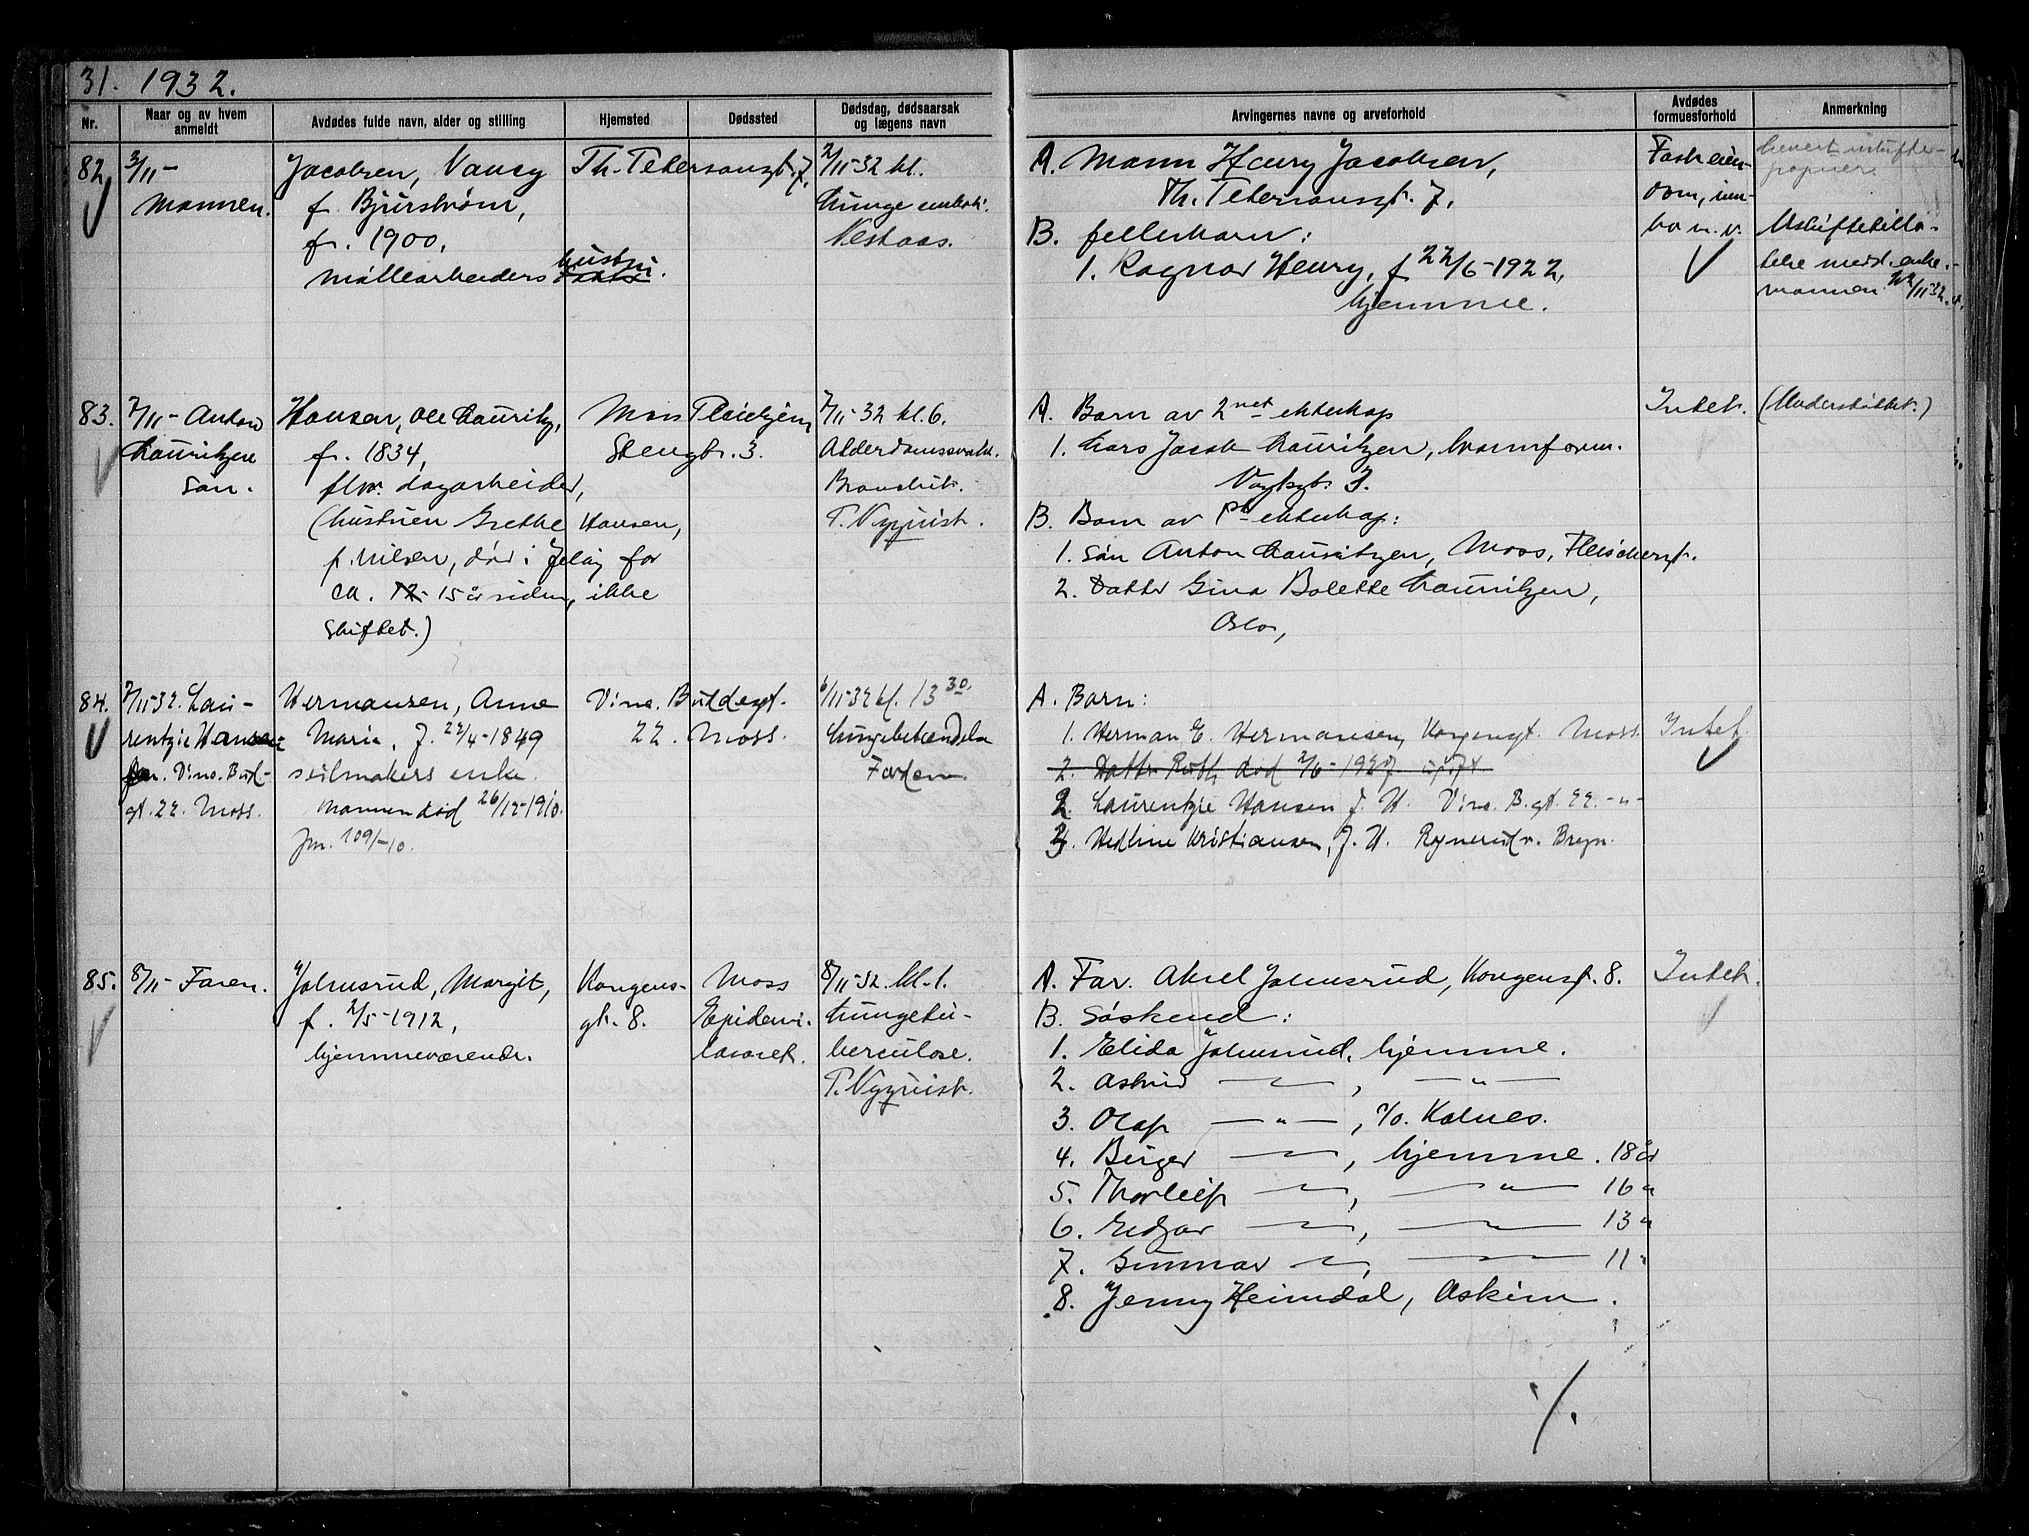 31. 1932.
Nr.
Naar og av hvem anmeldt
Avdødes fulde navn, alder og stilling
Hjemsted
Dødssted
Dødsdag, dødsaarsak og lægens navn
Arvingernes navne og arveforhold
Avdødes formuesforhold
Anmerkning
82.
3/11-
Mannen.
Jacobsen, Nancy
f. Bjurstrøm,
f. 1900,
møllearbeiders hustru.
Th. Petersonsgt. 7.
2/11-32 kl.
Lunge
Nestaas.
A. Mann Henry Jacobsen,
Th. Petersonsgt. 7.
B. fellesbarn:
1. Ragnar Henry, f. 22/6-1922,
hjemme.
Fast eien-
dom, inn-
bo m.v.
papirer
Uskiftetilla-
telse medd. enke-
mannen 22/11-32.
83.
7/11- Anton
Lauritzen
søn.
Hansen, Ole Lauritz,
f. 1834,
fhv. dagarbeider,
(hustruen Grethe Hansen,
f. Nilsen, død i Jeløy for
ca. 12- 15 år siden, ikke
skiftet.)
Moss Pleiehjem
Stengt. 3.
7/11-32 kl. 6.
Alderdomssvakh.
Bronchit.
T. Nyquist.
A. Barn av 2net ekteskap
1. Lars Jacob Lauritzen, barmforem.
Vogtsgt. 3.
B. Barn av 1st ekteskap:
1. Søn Anton Lauritzen, Moss, Fleischersgt.
2. Datter Gina Bolette Lauritzen,
Oslo,
Intet.
(Understøttet.)
84.
7/11-32. Lau-
rentzie Hansen
Vinc. Bud-
gt. 22. Moss.
Hermansen, Anne
Marie, f. 22/4-1849
seilmakers enke.
Mannen død 26/12-1910.
Jm. 109/-10.
Vinc. Buddesgt.
22. Moss.
6/11-32 kl. 13 30.
Lungebetændelse
Farden
A. Barn:
1. Herman E. Hermansen, Kongensgt. Moss.
2. Datter Ruth død 2/6-1927 ugift
2. Laurentzie Hansen f. H. Vinc. B. gt. 22. -"-
3. Hedline Kristiansen, f. H. Rynerud v. Bryn.
Intet.
85.
8/11- Faren.
Johnsrud, Margit,
f. 2/5-1912,
hjemmeværende.
Kongens-
gt. 8.
Moss
Epidemi-
lasaret.
8/11-32. kl. 1.
Lungetu-
berculose.
T. Nyquist.
A. Far. Aksel Johnsrud, Kongensgt. 8.
B. Søskend:
1. Elida Johnsrud, hjemme.
2. Astrid —"—, —"—
3. Olaf —"—, c/o. Kalnes.
4. Birger —"—, hjemme. 18 år
5. Thorleif —"—, —"— 16 "
6. Edgar —"—, —"— 13 "
7. Gunnar —"—, —"— 11 "
8. Jenny Heimdal, Askim.
Intet.